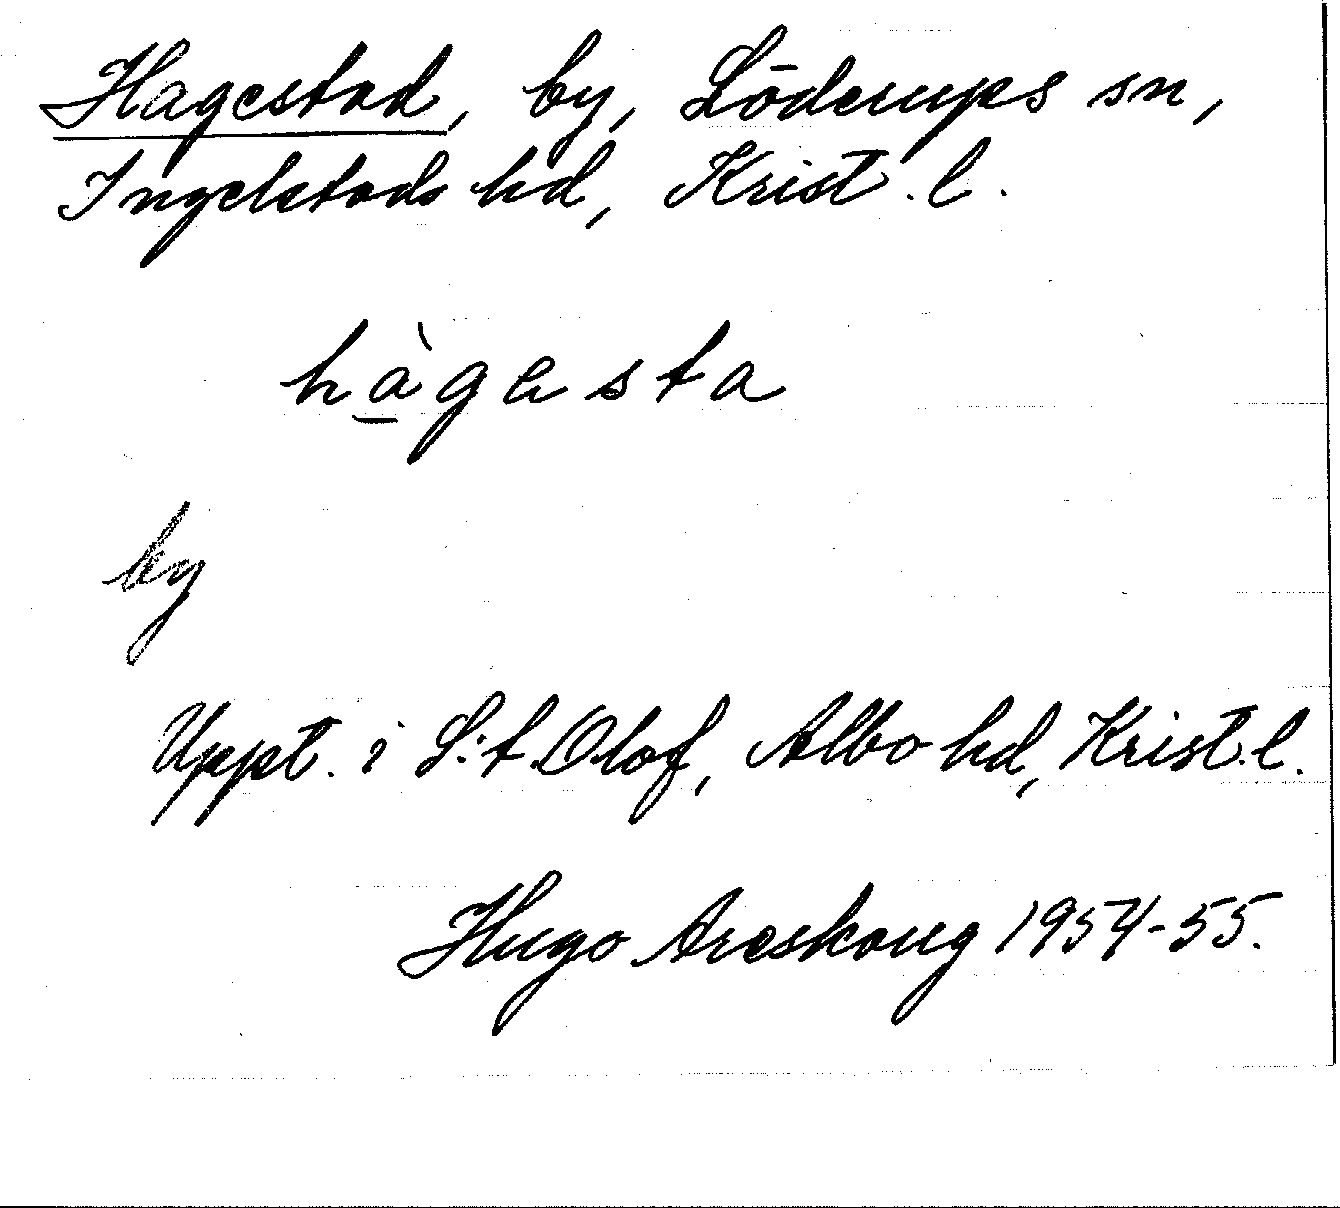 Hagestad, by, Löderups sn,
Ingelstads hd, Krist. l.
hàgesta
by
Uppt. i S:t. Olof, Albo hd, Krist. l.
Hugo Areskoug 1954-55.